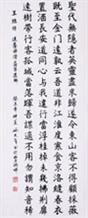 聖代無隱者英靈盡來歸遂令東山客不得顧採薇
既至君門遠孰云吾道非江淮度寒食京洛縫春衣
置酒長安道同心與我違行當浮桂棹未幾拂荊扉
遠樹帶行客孤城當落暉吾謀適不用勿謂知音稀
王維詩